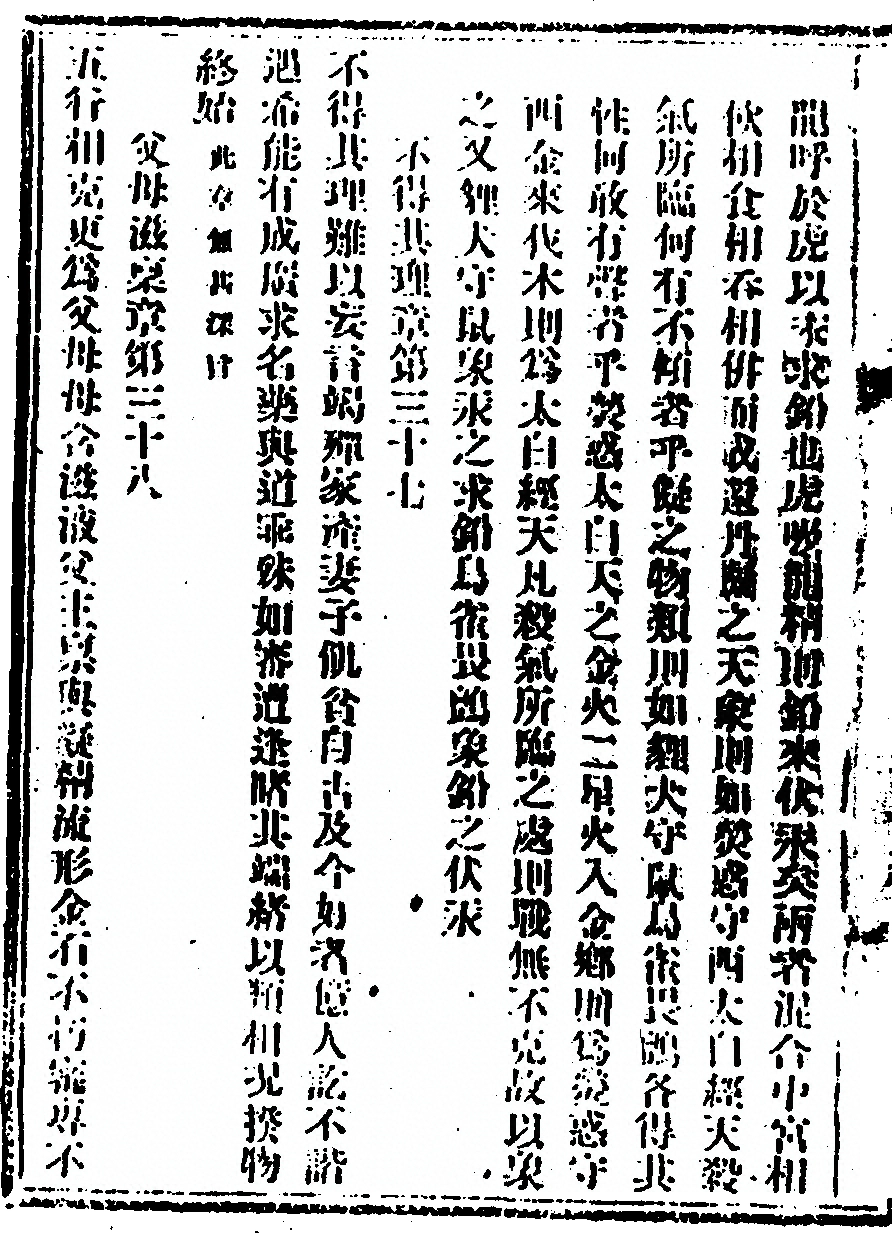 龍呼於虎以汞求鉛也虎吸龍精則鉛來伏汞矣兩者混合中宮相
伙相食相吞相併而成還丹驗之天象則如熒惑守西太白經天殺
氣所臨何有不傾者乎擬之物類則如貍犬守鼠鳥雀畏鸇各得其
性何敢有聲者乎熒惑太白天之金火二星火入金鄉則為熒惑守
西金來伐木則為太白經天凡殺氣所臨之處則戰無不克故以象
之又貍犬守鼠象汞之求鉛鳥雀畏鸇象鉛之伏汞
不得其理章第三十七
不得其理難以妄言竭殫家產妻子飢貧自古及今好者億人訖不諧
遇希能有成廣求名藥與道乖殊如審遭逢睹其端緒以類相況揆物
終始此章無甚深旨
父母滋稟章第三十八
五行相克更為父母母含滋液父主稟與凝精流形金石不朽審專不